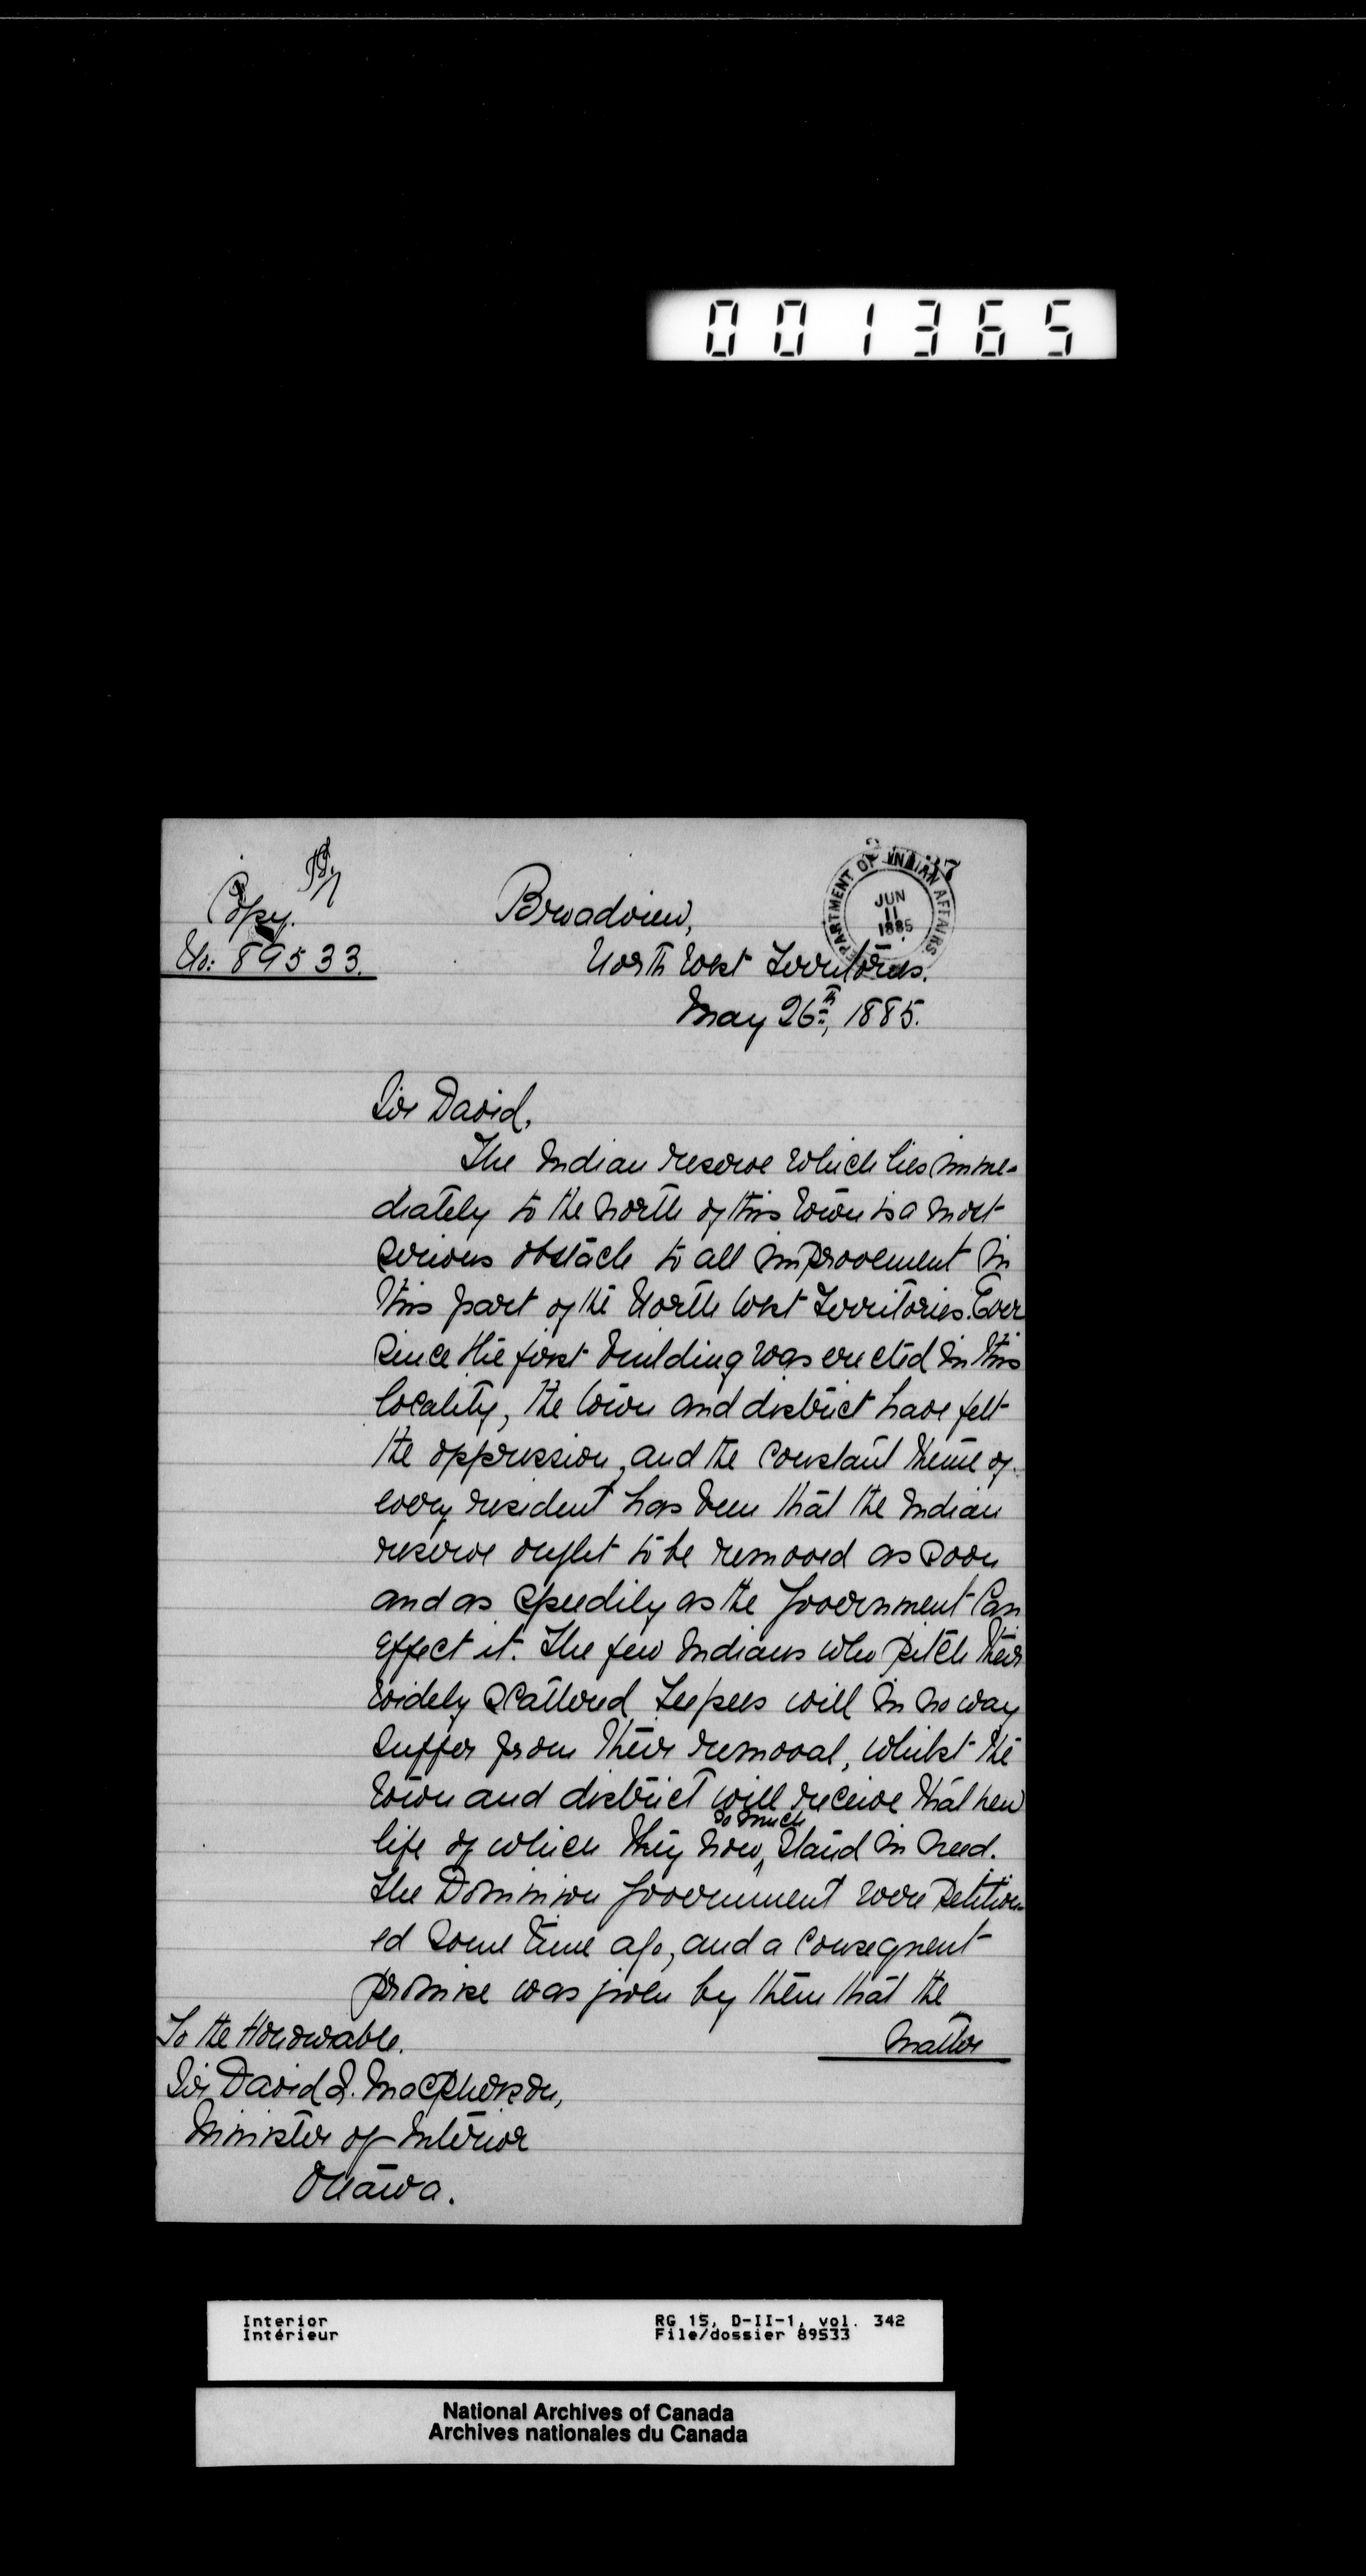 001365
Copy.
No: 89533.
DEPARTMENT OF INDIAN AFFAIRS
JUN
11
1885
Broadview,
North West Territories.
May 26th, 1885.
Sir David,
The Indian reserve which lies imme-
diately to the north of this town is a most
serious obstacle to all improvement in
this part of the North West Territories. Ever
since the first building was erected in this
locality, the town and district have felt
the oppression, and the constant theme of
every resident has been that the Indian
reserve ought to be removed as soon
and as speedily as the Government can
effect it. The few Indians who pitch their
widely scattered Teepees will in no way
suffer from their removal, whilst the
town and district will receive that new
life of which they now so much stand in need.
The Dominion Government were petition-
ed some time ago, and a consequent
promise was given by them that the
matter
To the Honourable.
Sir David L. Macpherson,
Minister of Interior
Ottawa.
Interior
Intérieur
RG 15, D-II-1, vol. 342
File/dossier 89533
National Archives of Canada
Archives nationales du Canada